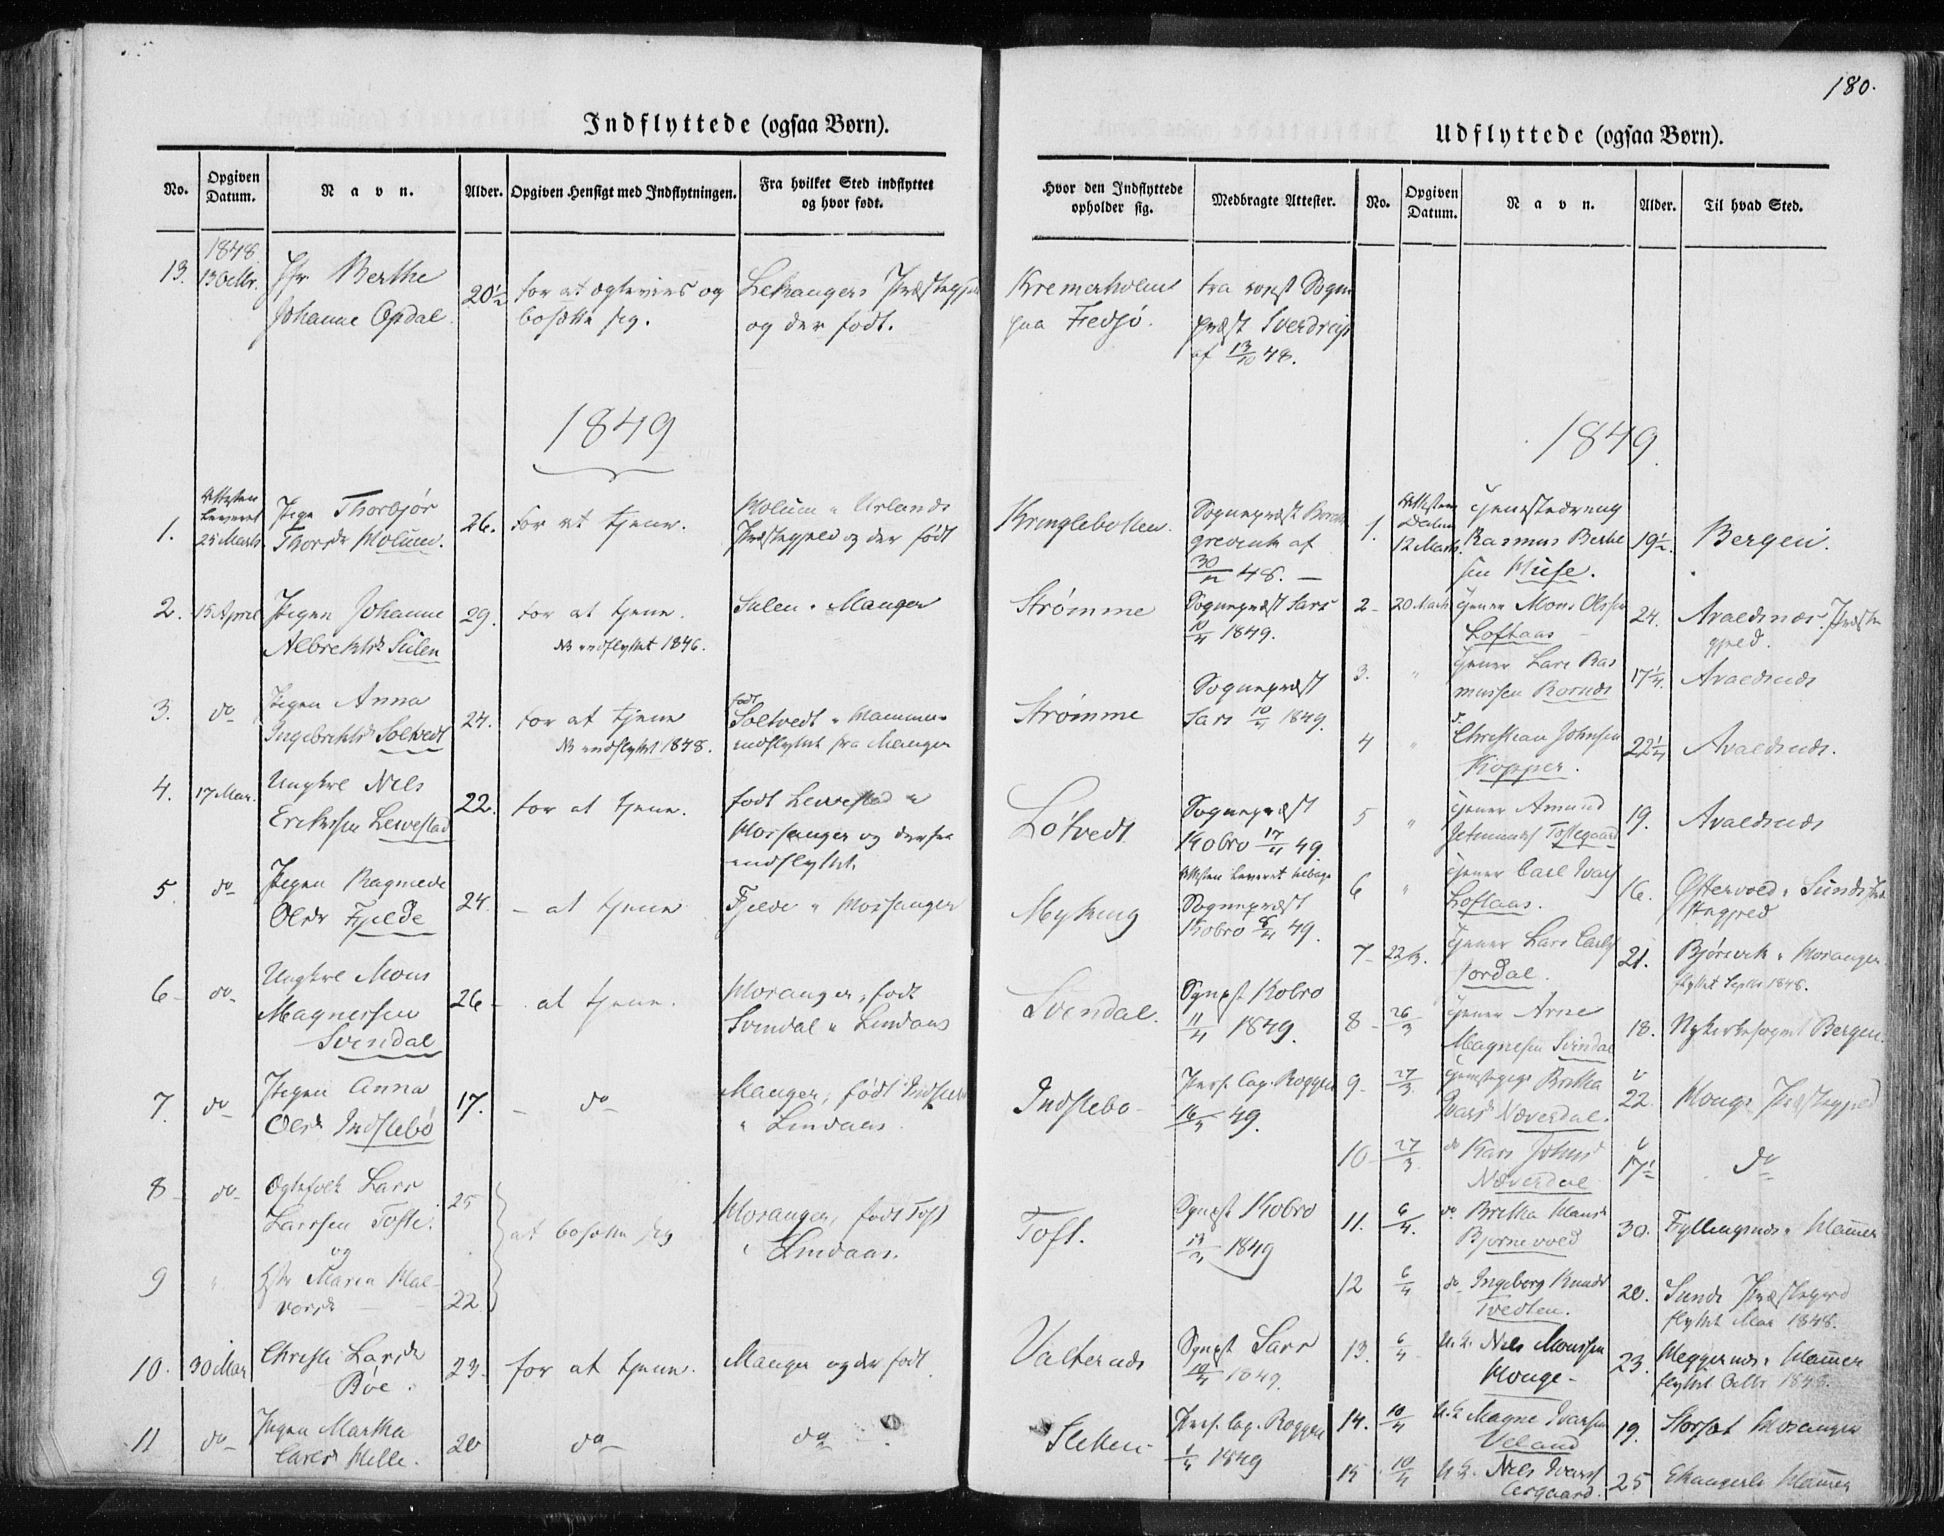 180.
Indflyttede (ogsaa Børn).
No.
Opgiven Datum.
Navn.
Alder.
Opgiven Hensigt med Indflytningen.
Fra hvilket Sted indflyttet og hvor født.
Hvor den Indflyttede opholder sig.
Medbragte Attester.
1848
13. 13 Octbr. Jfr Berthe
Johanne Opdal
20½
for at ægtevies og
bosætte sig.
Lekangers Præstegjeld
og der født.
Kremerholmen
paa Fedjö.
fra const Sogne
præst Sverdrup
af 13/10 48.
1849
1. Attesten
leveret
25 Marts
Pige Thorbjør
Thorsdr Holum.
26.
for at tjene.
Holum Urlands
Præstegjeld og der født
Kringlebotten.
Sognepræst
af
30/12 48.
2. 15 April
Pigen Johanne
Albrektsdr Sulen
29.
for at tjene.
NB indflyttet 1846.
Sulen Manger
Strømme
Sognepræst Sars
10/4 1849.
3. do
Pigen Anna
Ingebrektsdr Soltvedt
24.
for at tjene
NB indflyttet 1848.
født
Soltvedt Hammer
indflyttet fra Manger
Strømme
Sognepræst
Sars 10/4 1849.
4. 17 Mar.
Ungkrl Nels
Eriksen Levestad
22.
for at tjene.
født Levestad
Hosanger og derfra
indflyttet.
Lötvedt
Sognepræst
Kobro 17/4 49.
5. do
Pigen Ragnede
Olsdr Fjelde
24.
- at tjene
Fjelde Hosanger
Myking
Attesten leveret tilbage
Sognepræst
Kobro 8/4 49.
6 - do
Ungkrl Mons
Magnessen
Svendal
26 -
at tjene.
Hosanger, født
Svindal Lindaas
Svendal.
Sgnpst Kobro
11/4 1849.
7. do
Pigen Anna
Olsdr Indslebö
17.
- do
Manger, født Indslebö
Lindaas.
Indslebo
Pers. Cap. Roggen
16/4 49.
8 - do
Ægtefolk Lars
Larssen Tofte.
og
25
at bosætte sig
Hosanger, født Toft
Lindaas.
Toft.
Sgnpst Kobro
13/4 1849
9 "
Hstr Maria Hal-
vorsdr
22
10. 30 Mar
Christi Larsdr
Böe.
23.
for at tjene.
Manger og der født
Valternæs
Sgnpst Sars
10/4 1849.
11 do
Pigen Martha
Carlsdr Hille.
20
do
do
Sletten
Pers. Cap. Roggen
1/4 1849
Udflyttede (ogsaa Børn).
No.
Opgiven Datum.
Navn.
Alder.
Til hvad Sted.
1849.
1. Attestens
Datum
12 Marts.
Tjenestedreng
Rasmus Berthe
sen Huse.
19½.
Bergen.
2 - 20 Marts
Tjener Mons Olsen
Loftaas
24.
Avaldsnæs Præste
gjeld.
3. "
Tjener Lars Ras
mussen Rornæs
17¼.
Avaldsnæs
4 "
Christian Johnsen
Kopper.
22¼
Avaldsnæs.
5 "
Tjener Amund
Tostegaard
19.
Avaldsnæs
6 "
Tjener Carl Ivars
Loftaas.
16.
Ostervold Sunds Præ
stegjeld
7 - 22/3.
Tjener Lars Carls
Jordal.
21.
Bjørsvik Hosanger
flyttet Septbr 1848.
8 - 26/3
Tjener Arne
Magnesen Svindal
18.
Nykirkesognet Bergen.
9 - 27/3
Tjenestepige Britha
Ivarsd Næverdal.
22.
Hougs Præstegjeld
10 - 27/3
do Kari Johnsd
Næverdal
17½
do
11. 6/4.
do. Britha Hansdr
Bjørnevold
30.
Fyllingsnæs Hammer
12 6/4
do Ingeborg Knudsd
Tvedten.
20.
Sunds Præstegjeld
flyttet Mai 1848.
13. 6/4
U.K. Nels Monssen
Houge
23.
Heggernæs Hammer
flyttet Octbr 1848.
14. 10/4
U.K. Magne Ivarsen
Veland
19.
Storset Hosanger
15 10/4
U.K. Nels Ivars
25
Hammer